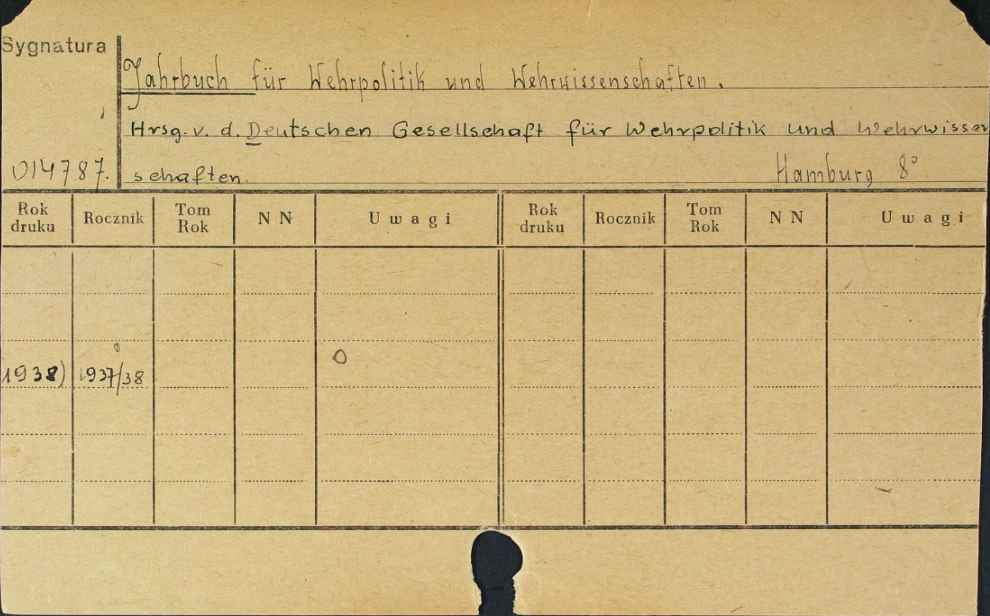 Sygnatura
Jahrbuch für Wehrpolitik und Wehrwissenschaften.
Hrsg. v. d. Deutschen Gesellschaft für Wehrpolitik und Wehrwissen
014787. schaften. Hamburg 8°
Rok druku Rocznik Tom Rok NN Uwagi Rok druku Rocznik Tom Rok NN Uwagi
1938) 1937/38